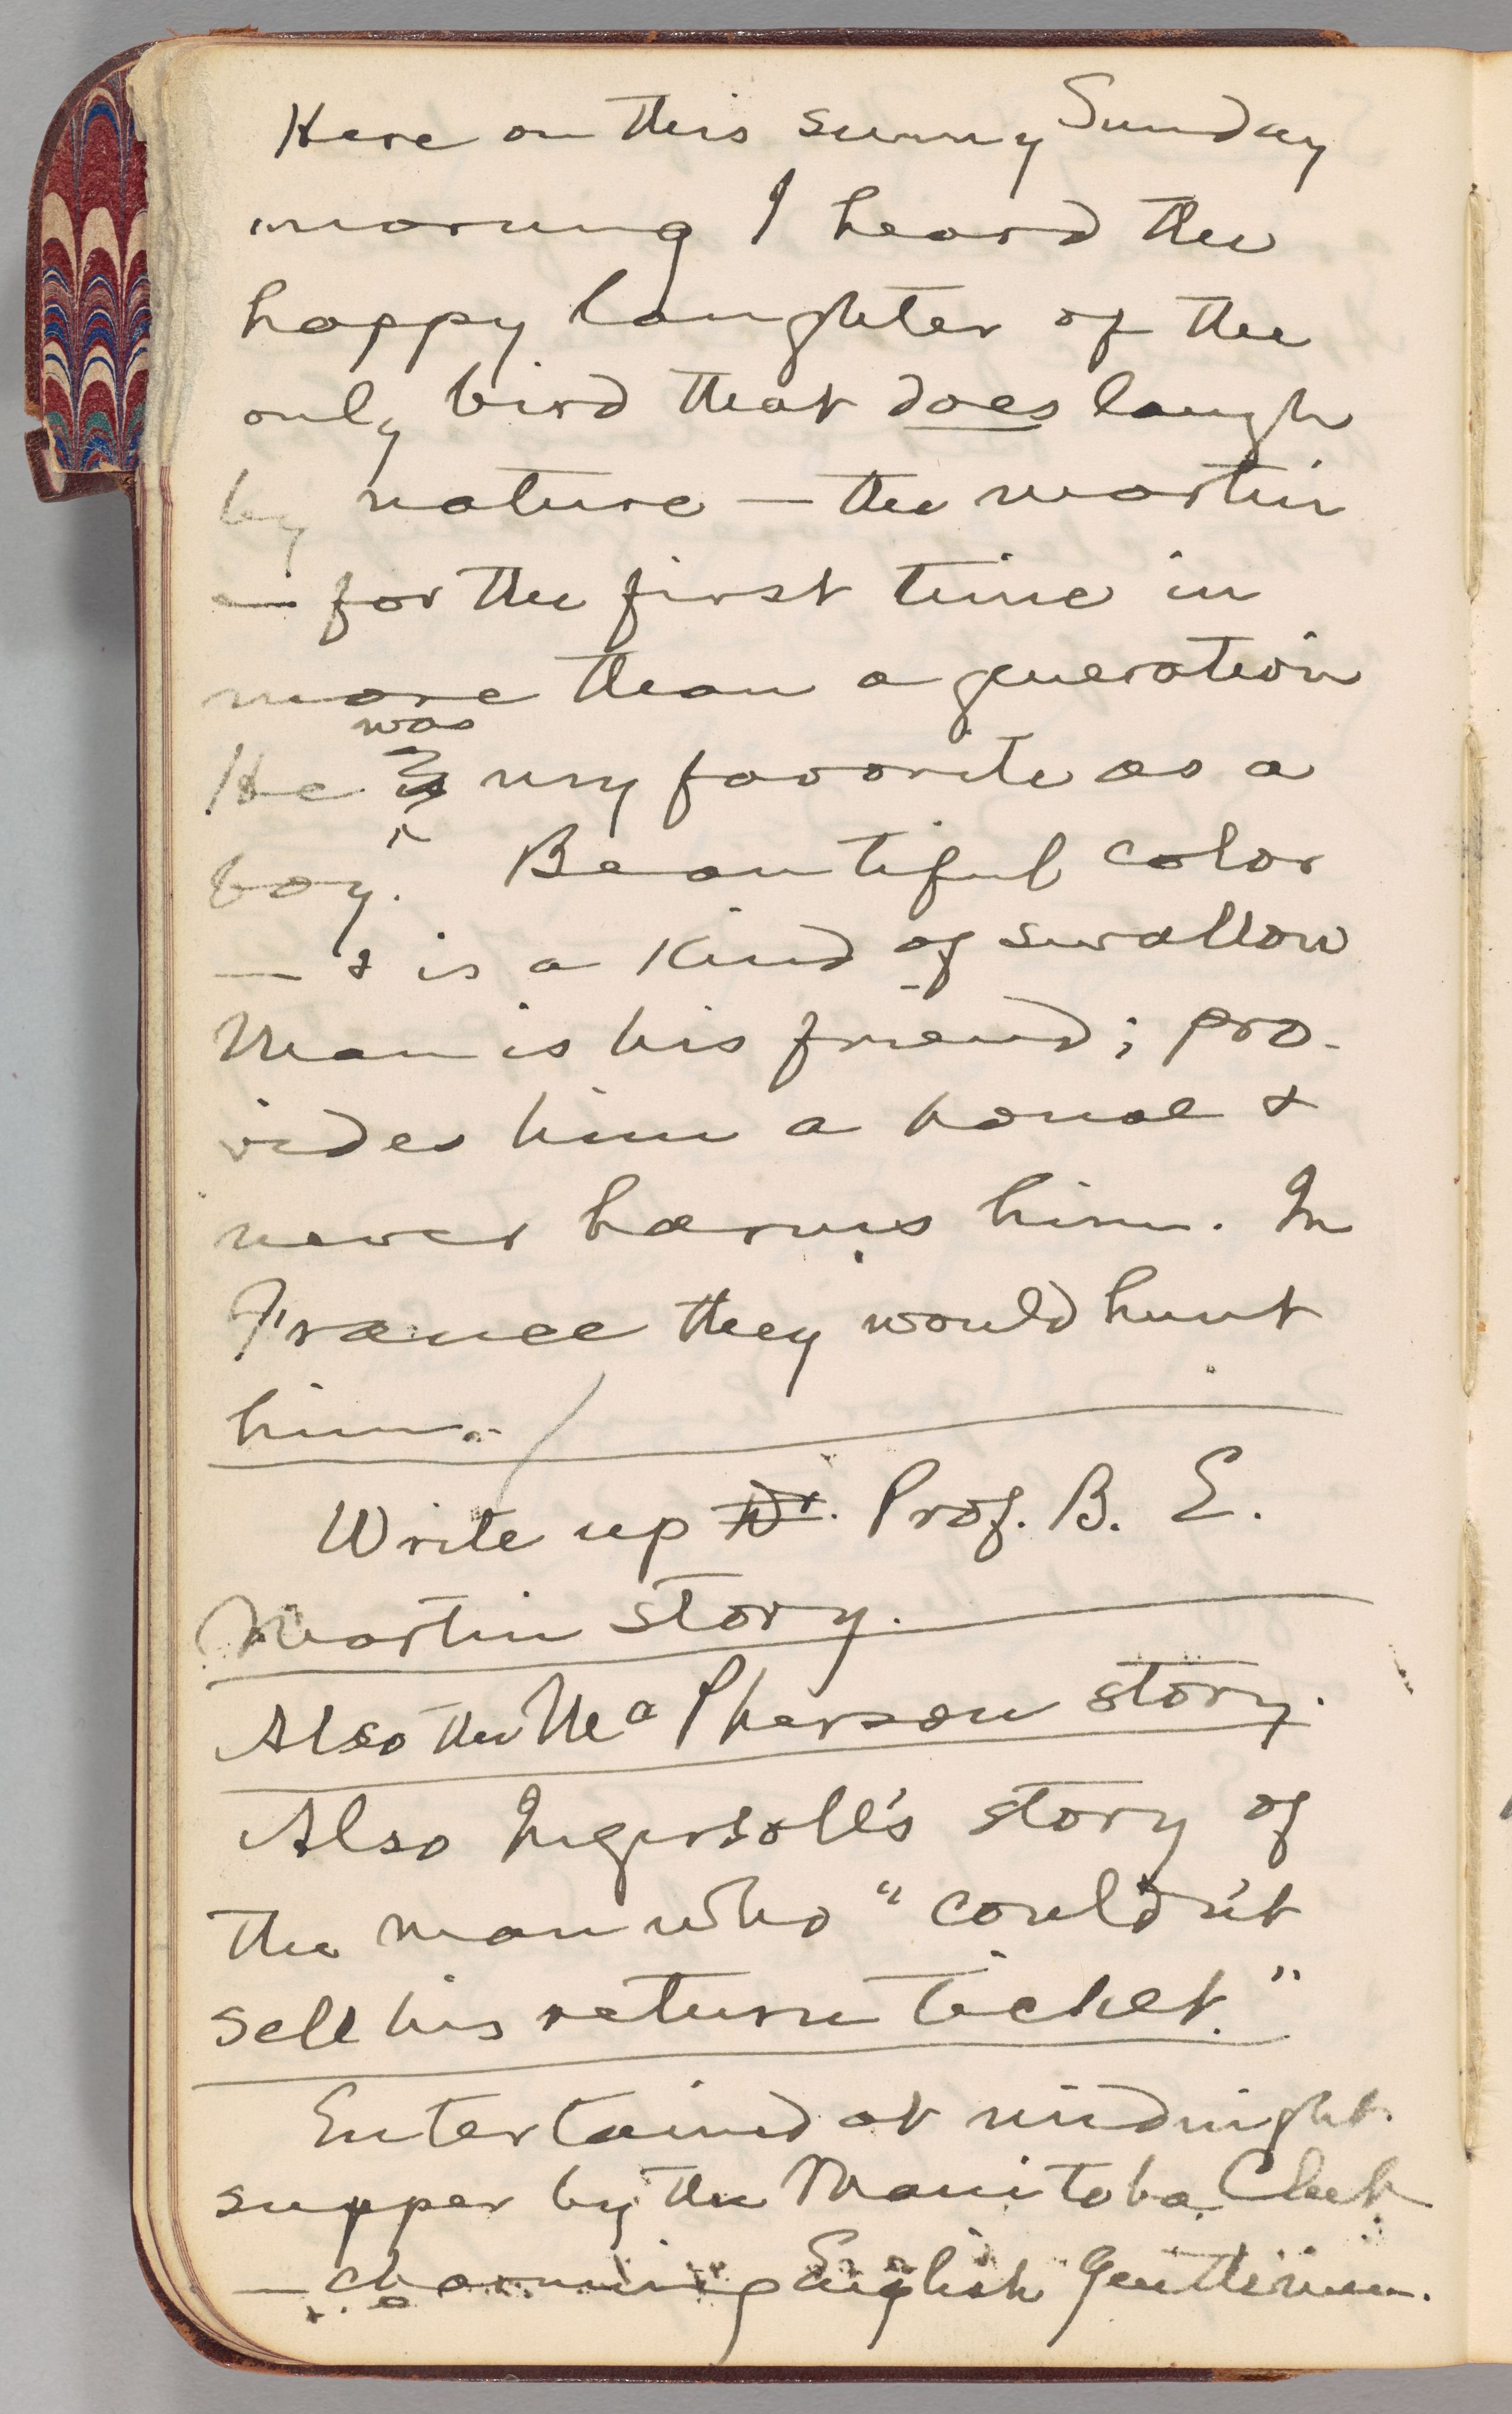 Here on this sunny Sunday
morning I heard the
happy laughter of the
only bird that does laugh
by nature — the martin
— for the first time in
more than a generation
was
He is my favorite as a
boy. Beautiful color
— & is a kind of swallow
Man is his friend; pro-
vides him a house &
never harms him. In
France they would hunt
him.
Write up Dr. Prof. B. E.
Martin story.
Also the McPherson story.
Also Ingersoll's story of
the man who "couldn't
sell his return ticket."
Entertained at midnight
supper by the Manitoba Club
— charming English gentlemen.